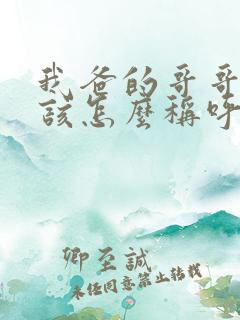 我爸的哥哥
該怎麼稱呼
卿至誠
未经同意禁止转载